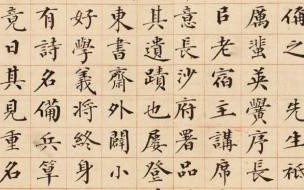 俑之先生祗
厲蜚英黌序長
㠯老宿主講席
意長沙府署品
其遺蹟也屢登
東書齋外闢小
好學義將終身
有詩名備兵
竟日其見重名